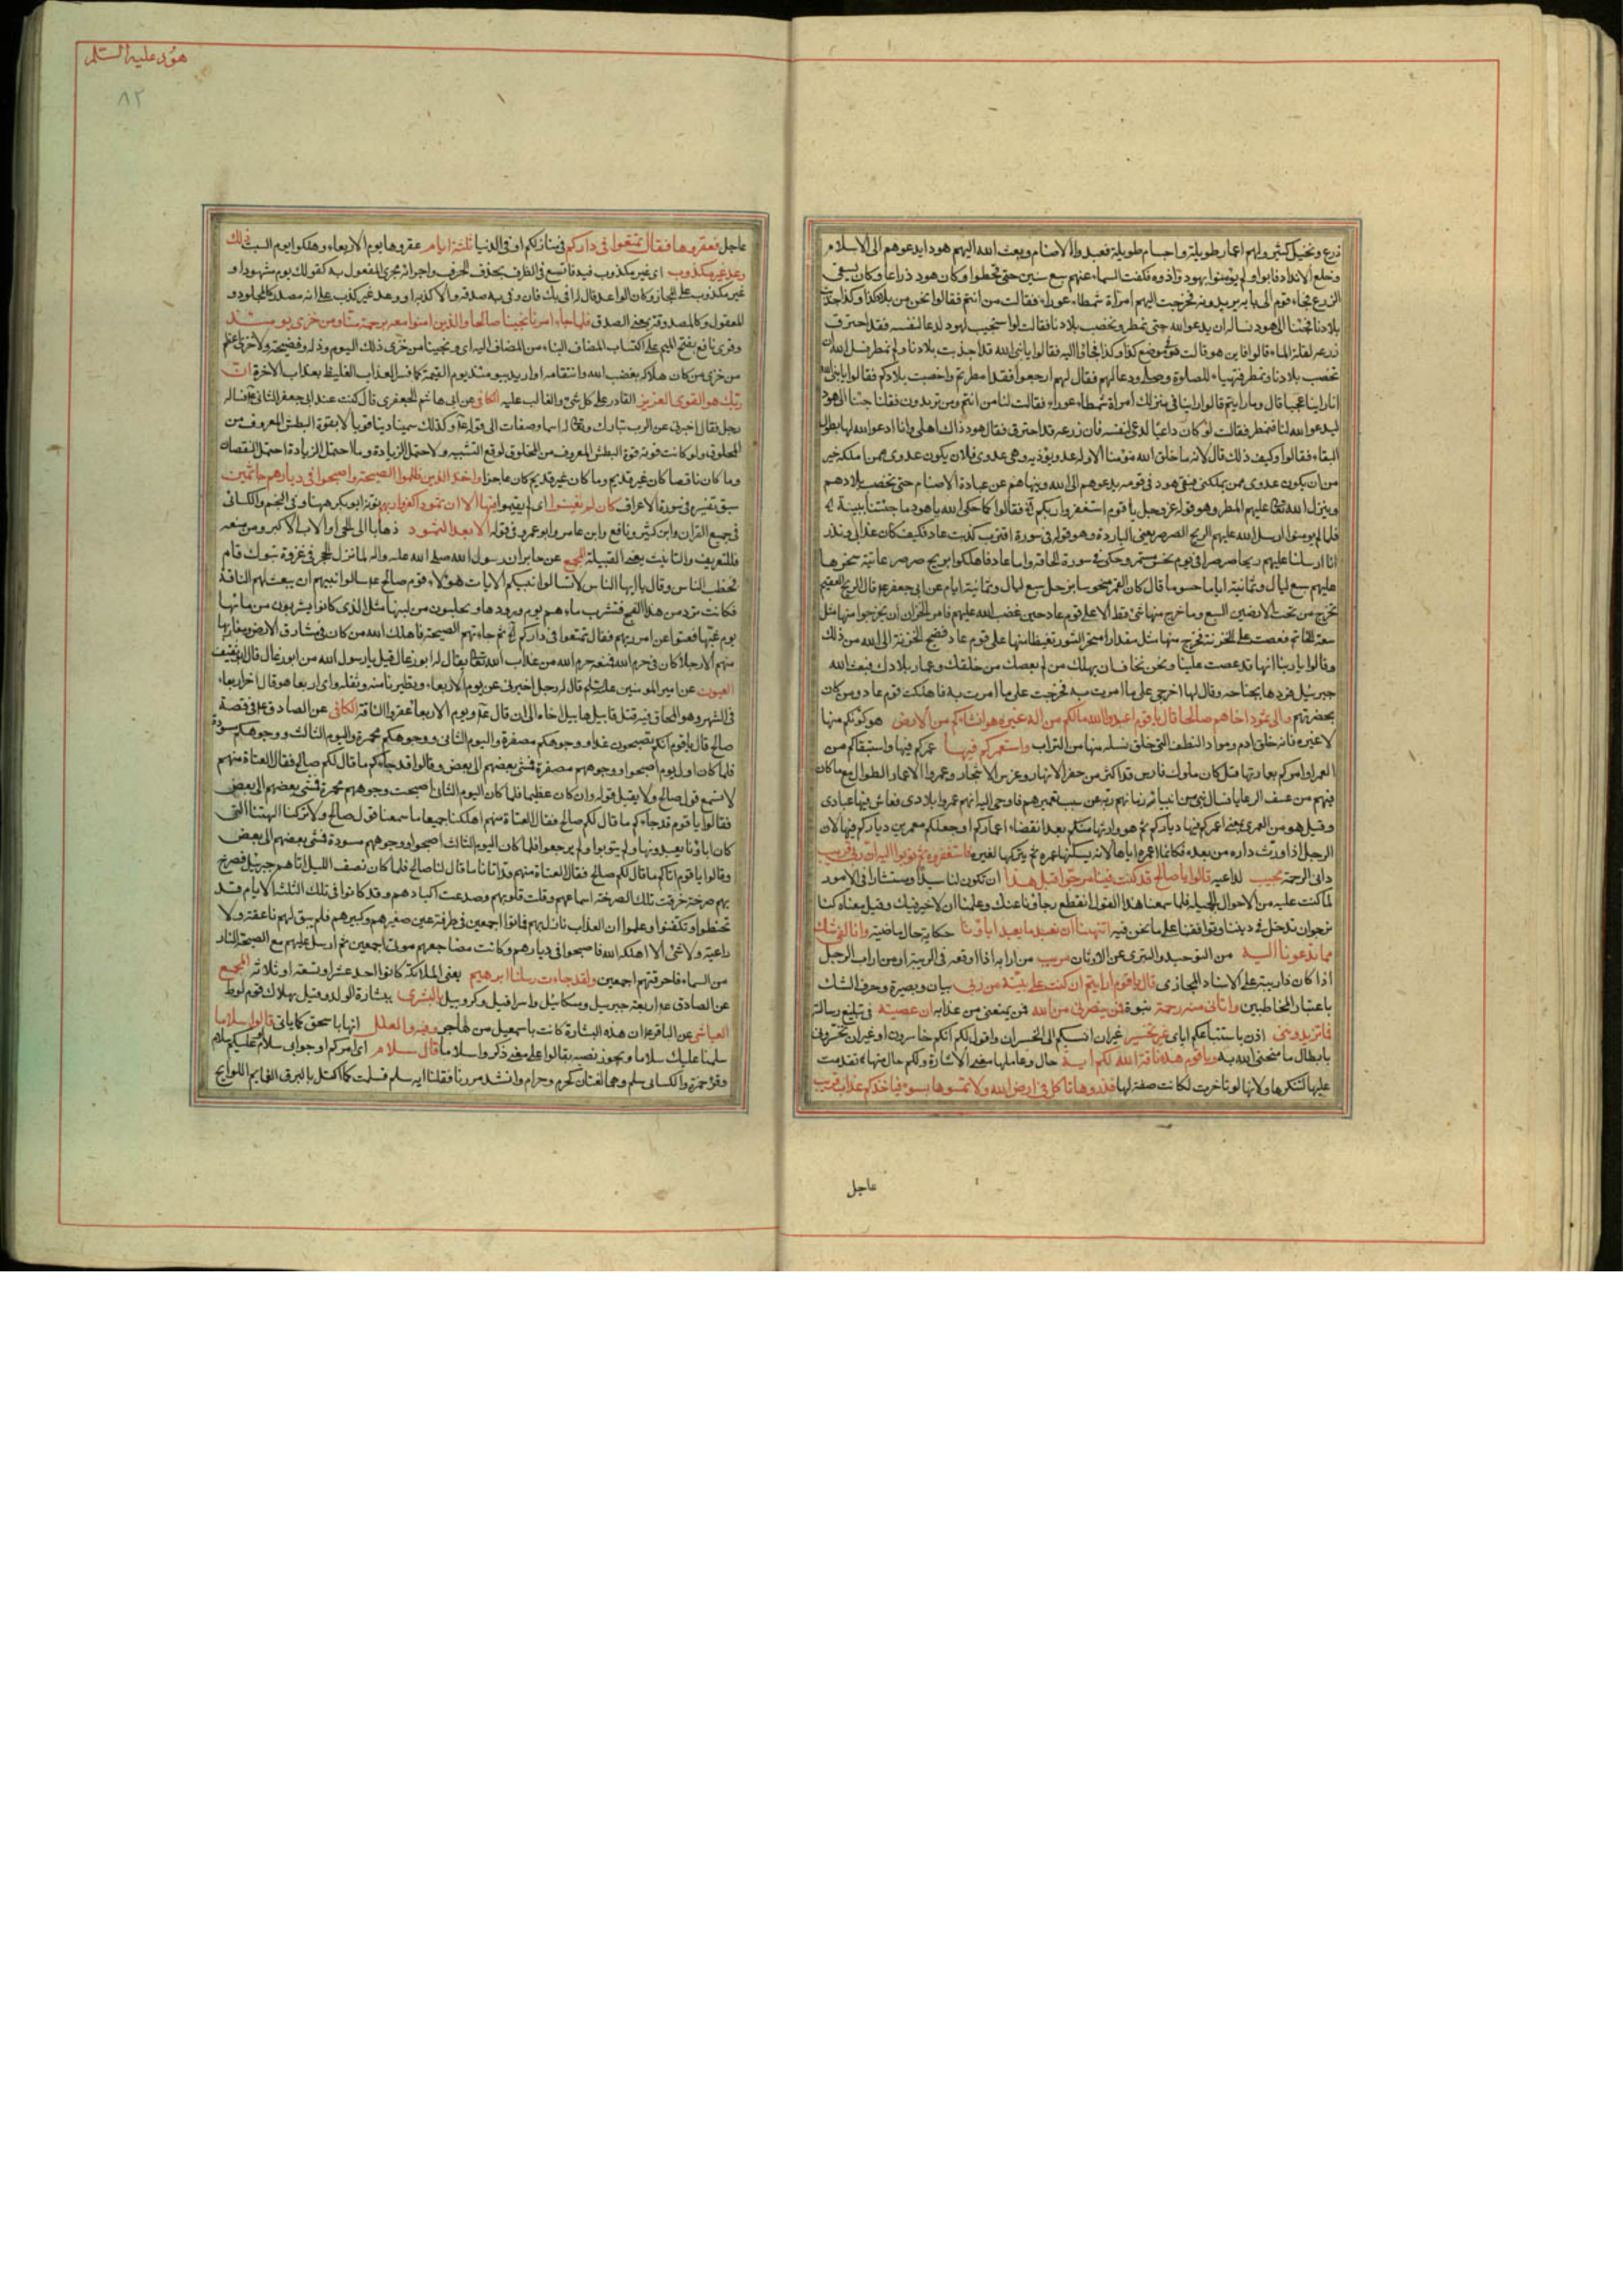 زرع ونخيل كثير ولهم اعمار طويلة واجسام طويلة فعبدوا الاصنام وبعث الله اليهم هودا يدعوهم الى الاسلام
وخلع الانداد فابوا ولم يؤمنوا بهود واذوه فكفت السماء عنهم سبع سنين حتى قحطوا وكان هود زراعا وكان يسقى
الزرع فجاء قوم الى بابه يريدونه فخرجت اليهم امراة شمطاء عوراء فقالت من انتم فقالوا نحن من بلاد كذا وكذا اجدبت
بلادنا فجئنا الى هود نساله ان يدعو الله حتى تمطر وتخصب بلادنا فقالت لو استجيب لهود لدعا لنفسه فقد احترق
زرعه لقلة الماء قالوا فاين هو قالت هو فى موضع كذا وكذا فجاؤا اليه فقالوا يا نبى الله قد اجدبت بلادنا ولم تمطر فسل الله ان
تخصب بلادنا وتمطر فتهياء للصلوة وصلى ودعا لهم فقال لهم ارجعوا فقد امطرتم واخصبت بلادكم فقالوا يا نبى الله
انا راينا عجبا قال وما رايتم قالوا راينا فى منزلك امراة شمطاء عوراء فقالت لنا من انتم ومن تريدون فقلنا جئنا الى هود
ليدعو الله لنا فتمطر فقالت لو كان داعيا لدعى لنفسه فان زرعه قد احترق فقال هود ذاك اهلى وانا ادعو الله لها بطول
البقاء فقالوا وكيف ذلك قال لانه ما خلق الله مؤمنا الا وله عدو يؤذيه وهى عدوى فلان يكون عدوى ممن املكه خير
من ان يكون عدوى ممن يملكنى فبقى هود فى قومه يدعوهم الى الله وينهاهم عن عبادة الاصنام حتى تخصب بلادهم
وينزل الله تعالى عليهم المطر وهو قوله عز وجل يا قوم استغفروا ربكم الآية فقالوا كما حكى الله يا هود ما جئتنا ببينة الآية
فلما لم يؤمنوا ارسل الله عليهم الريح الصرصر يعنى الباردة وهو قوله فى سورة اقتربت كذبت عاد فكيف كان عذابى ونذر
انا ارسلنا عليهم ريحا صرصرا فى يوم نحس مستمر وحكى فى سورة الحاقة واما عاد فاهلكوا بريح صرصر عاتية سخرها
عليهم سبع ليال وثمانية ايام حسوما قال كان القمر منحوسا بزحل سبع ليال وثمانية ايام عن ابى جعفر ع قال الريح العقيم
تخرج من تحت الارضين السبع وما خرج منها شئ قط الا على قوم عاد حين غضب الله عليهم فامر الخزان ان يخرجوا منها مثل
سعة الخاتم فعصت على الخزنة فخرج منها مثل مقدار منخر الثور تغيظا منها على قوم عاد فضج الخزنة الى الله من ذلك
وقالوا يا ربنا انها قد عصت علينا ونحن نخاف ان يهلك من لم يعصك من خلقك وعمار بلادك فبعث الله
جبرئيل فردها بجناحه وقال لها اخرجى على ما امرت به فخرجت على ما امرت به فاهلكت قوم عاد ومن كان
بحضرتهم والى ثمود اخاهم صالحا قال يا قوم اعبدوا الله ما لكم من اله غيره هو انشاكم من الارض هو كونكم منها
لا غيره فانه خلق ادم ومواد النطف التى خلق نسله منها من التراب واستعمركم فيها عمركم فيها واستبقاكم من
العمر او امركم بعمارتها قيل كان ملوك فارس قد اكثر من حفر الانهار وغرس الاشجار وعمروا الاعمار الطوال مع ما كان
فيهم من عسف الرعايا فسال نبى من انبياء زمانهم ربه عن سبب تعميرهم فاوحى اليه انهم عمروا بلادى فعاش فيها عبادى
وقيل هو من العمرى بمعنى اعمركم فيها دياركم ثم هو وارثها منكم بعد انقضاء اعماركم او جعلكم معمرين دياركم فيها لان
الرجل اذا ورث داره من بعده فكانما اعمره اياها لانه يسكنها عمره ثم يتركها لغيره فاستغفروه ثم توبوا اليه ان ربى قريب
دانى الرحمة مجيب لداعيه قالوا يا صالح قد كنت فينا مرجوا قبل هذا ان تكون لنا سيدا ومستشارا فى الامور
لما كنت عليه من الاحوال الجميلة فلما سمعنا هذا القول انقطع رجاؤنا عنك وعلمنا ان لا خير فيك وقيل معناه كنا
نرجوان تدخل فى ديننا وتوافقنا على ما نحن فيه اتنهينا ان نعبد ما يعبد اباؤنا حكاية حال ماضية واننا لفى شك
مما تدعونا اليه من التوحيد والتبرى عن الاوثان مريب من ارابه اذا اوقعه فى الريبة او من اراب الرجل
اذا كان ذا ريبة على الاسناد المجازى قال يا قوم ارايتم ان كنت على بينة من ربى بيان وبصيرة وحرف الشك
باعتبار المخاطبين واتانى منه رحمة نبوة فمن ينصرنى من الله فمن يمنعنى من عذابه ان عصيته فى تبليغ رسالته
فما تزيدوننى اذن باستتباعكم اياى غير تخسير غير ان انسبكم الى الخسران واقول لكم انكم خاسرون او غير ان تخسرونى
بابطال ما منحنى الله به ويا قوم هذه ناقة الله لكم اية حال وعاملها معنى الاشارة ولكم حال منها تقدمت
عليها لتنكرها ولانها لو تاخرت لكانت صفة لها فذروها تاكل فى ارض الله ولا تمسوها بسوء فياخذكم عذاب قريب
عاجل
هود عليه السلم
٨٢
عاجل فعقروها فقال تمتعوا فى داركم فى منازلكم او فى الدنيا ثلثة ايام عقروها يوم الاربعاء وهلكوا يوم السبت ذلك
وعد غير مكذوب اى غير مكذوب فيه فاتسع فى الظرف بحذف الحرف واجرائه مجرى المفعول به كقولك يوم مشهود او
غير مكذوب على المجاز وكان الواعد قال له افى بك فان وفى به صدقه والا كذبه او وعد غير كذب على انه مصدر كالمجلود و
المعقول وكالمصدوقة بمعنى الصدق فلما جاء امرنا نجينا صالحا والذين امنوا معه برحمة منا ومن خزى يومئذ
وقرى نافع بفتح الميم على اكتساب المضاف البناء من المضاف اليه اى ونجيناهم من خزى ذلك اليوم وذله وفضيحته ولا خزى اعظم
من خزى من كان هلاكه بغضب الله وانتقامه او اريد بيومئذ يوم القيمة كما فسر العذاب الغليظ بعذاب الاخرة ان
ربك هو القوى العزيز القادر على كل شئ والغالب عليه الكافى عن ابى هاشم الجعفرى قال كنت عند ابى جعفر الثانى ع فساله
رجل فقال اخبرنى عن الرب تبارك وتعالى له اسماء وصفات الى قوله ع وكذلك سمينا ربنا قويا لا بقوة البطش المعروف من
المخلوق ولو كانت قوته قوة البطش المعروف من المخلوق لوقع التشبيه ولاحتمل الزيادة وما احتمل الزيادة احتمل النقصان
وما كان ناقصا كان غير قديم وما كان غير قديم كان عاجزا واخذ الذين ظلموا الصيحة واصبحوا فى ديارهم جاثمين
سبق تفسيره فى سورة الاعراف كان لم يغنوا اى لم يقيموا فيها الا ان ثمود كفروا ربهم نونه ابو بكر ههنا وفى النجم والكسائى
فى جميع القران وابن كثير ونافع وابن عامر وابو عمرو فى قوله الا بعدا لثمود ذهابا الى الحى او الاب الاكبر ومن منعه
فللتعريف والتانيث بمعنى القبيلة المجمع عن جابر ان رسول الله صلى الله عليه واله لما نزل الحجر فى غزوة تبوك قام
فخطب الناس وقال يا ايها الناس لا تسالوا نبيكم الايات هؤلاء قوم صالح ع سالوا نبيهم ان يبعث لهم الناقة
فكانت ترد من هذا الفج فتشرب ماءهم يوم ورودها ويحلبون من لبنها مثل الذى كانوا يشربون من مائها
يوم غبها فعتوا عن امر ربهم فقال تمتعوا فى داركم الآية ثم جاءتهم الصيحة فاهلك الله من كان فى مشارق الارض ومغاربها
منهم الا رجلا كان فى حرم الله فمنعه حرم الله من عذاب الله تعالى يقال له ابو رغال قيل يا رسول الله من ابو رغال قال ابو ثقيف
العيون عن امير المؤمنين عليه السلم قال له رجل اخبرنى عن يوم الاربعاء وتطيرنا منه وثقله واى اربعاء هو قال اخر اربعاء
فى الشهر وهو المحاق وفيه قتل قابيل هابيل اخاه الى ان قال ع ويوم الاربعاء عقروا الناقة الكافى عن الصادق ع فى قصة
صالح قال يا قوم انكم تصبحون غدا ووجوهكم مصفرة واليوم الثانى ووجوهكم محمرة واليوم الثالث ووجوهكم مسودة
فلما كان اول يوم اصبحوا ووجوههم مصفرة فمشى بعضهم الى بعض وقالوا قد جاءكم ما قال لكم صالح فقال العتاة منهم
لا نسمع قول صالح ولا يقبل قوله وان كان عظيما فلما كان اليوم الثانى اصبحت وجوههم محمرة فمشى بعضهم الى بعض
فقالوا يا قوم قد جاءكم ما قال لكم صالح فقال العتاة منهم لو اهلكنا جميعا ما سمعنا قول صالح ولا تركنا الهتنا التى
كان اباؤنا يعبدونها ولم يتوبوا ولم يرجعوا فلما كان اليوم الثالث اصبحوا ووجوههم مسودة فمشى بعضهم الى بعض
وقالوا يا قوم اتاكم ما قال لكم صالح فقال العتاة منهم قد اتانا ما قال لنا صالح فلما كان نصف الليل اتاهم جبرئيل فصرخ
بهم صرخة خرقت تلك الصرخة اسماعهم وفلقت قلوبهم وصدعت اكبادهم وقد كانوا فى تلك الثلثة الايام قد
تحنطوا وتكفنوا وعلموا ان العذاب نازل بهم فماتوا اجمعين فى طرفة عين صغيرهم وكبيرهم فلم يبق لهم ناعقة ولا
راعية ولا شئ الا اهلكه الله فاصبحوا فى ديارهم وكانت مضاجعهم موتى اجمعين ثم ارسل عليهم مع الصيحة النار
من السماء فاحرقتهم اجمعين ولقد جاءت رسلنا ابرهيم يعنى الملائكة كانوا احد عشر او تسعة او ثلاثة المجمع
عن الصادق ع اربعة جبرئيل وميكائيل واسرافيل وكروبيل بالبشرى ببشارة الولد وقيل بهلاك قوم لوط
العياشى عن الباقر ع ان هذه البشارة كانت باسمعيل من هاجر وفيه والعلل انها باسحق كما ياتى قالوا سلاما
سلمنا عليك سلاما ويجوز نصبه بقالوا على معنى ذكروا سلاما قال سلام اى امركم او جوابى سلام او عليكم سلام
وقرء حمزة والكسائى سلم وهما لغتان كحرم وحرام وانشد مررنا فقلنا ايه سلم فسلمت كما اكتل بالبرق الغمام اللوايح